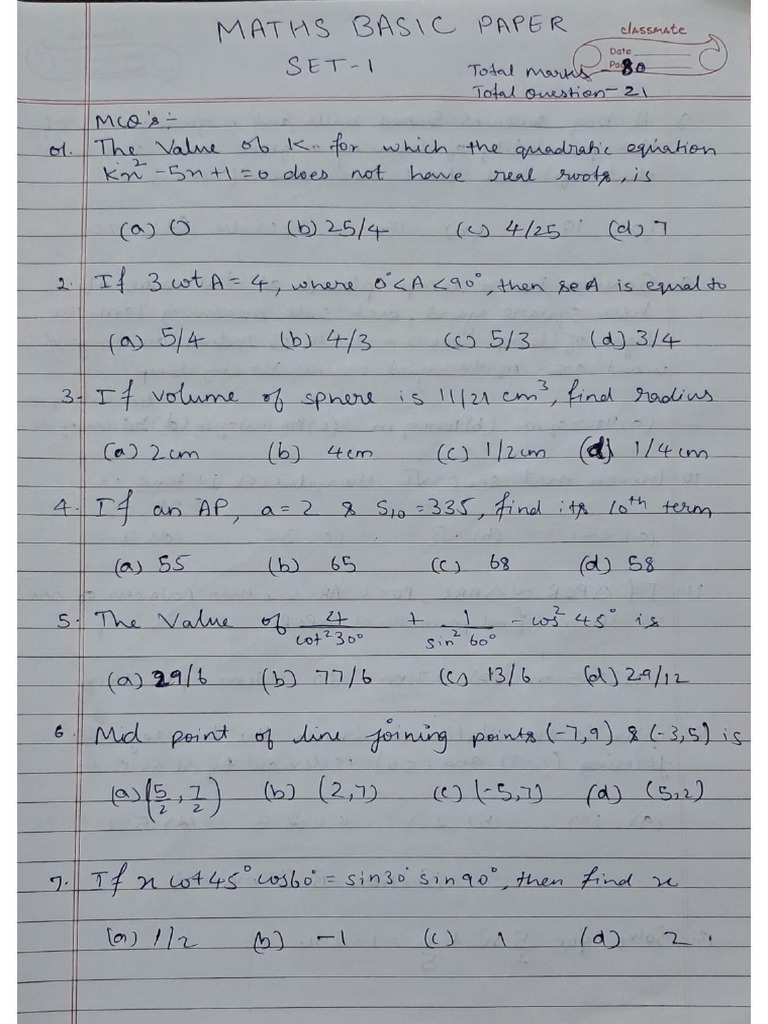 MATHS BASIC PAPER
classmate
Date
Page
SET-1
Total marks - 80
Total Question - 21
MCQ's :-
01. The Value of K for which the quadratic equation
kx² - 5x + 1 = 0 does not have real roots, is
(a) 0 (b) 25/4 (c) 4/25 (d) 7
2. If 3 cot A = 4, where 0° < A < 90°, then sec A is equal to
(a) 5/4 (b) 4/3 (c) 5/3 (d) 3/4
3. If volume of sphere is 11/21 cm³, find radius
(a) 2cm (b) 4cm (c) 1/2cm (d) 1/4 cm
4. If an AP, a = 2 & S₁₀ = 335, find its 10th term
(a) 55 (b) 65 (c) 68 (d) 58
5. The Value of 4/cot²30° + 1/sin²60° - cos²45° is
(a) 29/6 (b) 77/6 (c) 13/6 (d) 29/12
6. Mid point of line joining points (-7,9) & (-3,5) is
(a) (5/2, 7/2) (b) (2,7) (c) (-5,7) (d) (5,2)
7. If x cot45° cos60° = sin30° sin90°, then find x
(a) 1/2 (b) -1 (c) 1 (d) 2.